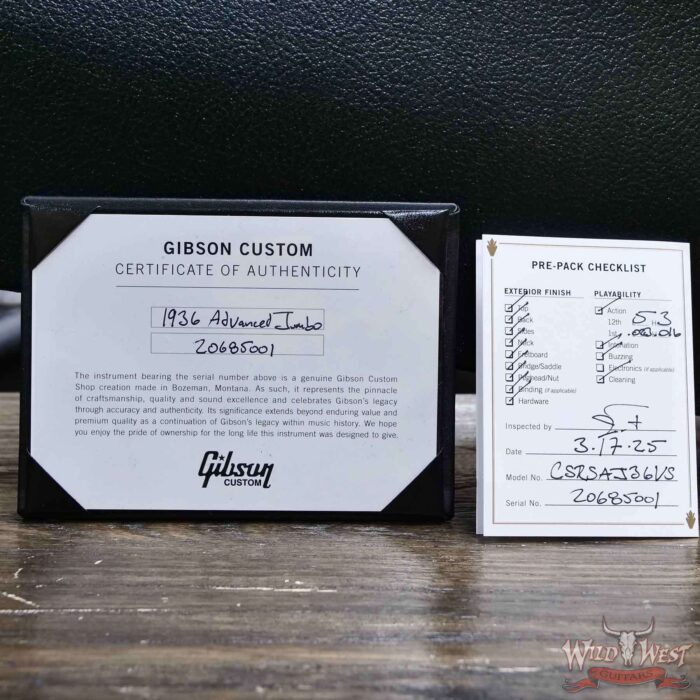 GIBSON CUSTOM
CERTIFICATE OF AUTHENTICITY
1936 Advanced Jumbo
20685001
The instrument bearing the serial number above is a genuine Gibson Custom
Shop creation made in Bozeman, Montana. As such, it represents the pinnacle
of craftsmanship, quality and sound excellence and celebrates Gibson's legacy
through accuracy and authenticity. Its significance extends beyond enduring value and
premium quality as a continuation of Gibson's legacy within music history. We hope
you enjoy the pride of ownership for the long life this instrument was designed to give.
Gibson
CUSTOM
PRE-PACK CHECKLIST
EXTERIOR FINISH
Top
Back
Sides
Neck
Fretboard
Bridge/Saddle
Peghead/Nut
Binding (if applicable)
Hardware
PLAYABILITY
Action
12th 5 3
1st
Intonation
Buzzing
Electronics (if applicable)
Cleaning
Inspected by
Date 3.17.25
Model No. CSRSAJ36VS
Serial No. 20685001
WILD WEST
GUITARS